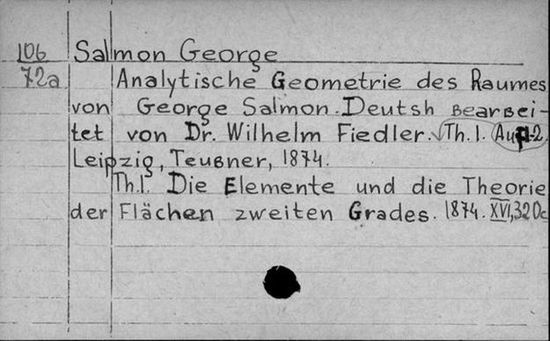 106 Salmon George
72a Analytische Geometrie des Raumes
von George Salmon. Deutsh bearbei-
tet von Dr. Wilhelm Fiedler. Th. I. Aufl. 2
Leipzig, Teubner, 1874.
Th.I. Die Elemente und die Theorie
der Flächen zweiten Grades. 1874. XVI, 320c